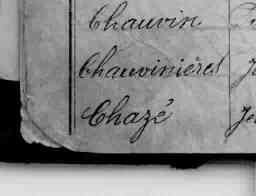 Chauvin
Chauvinières
Chazé